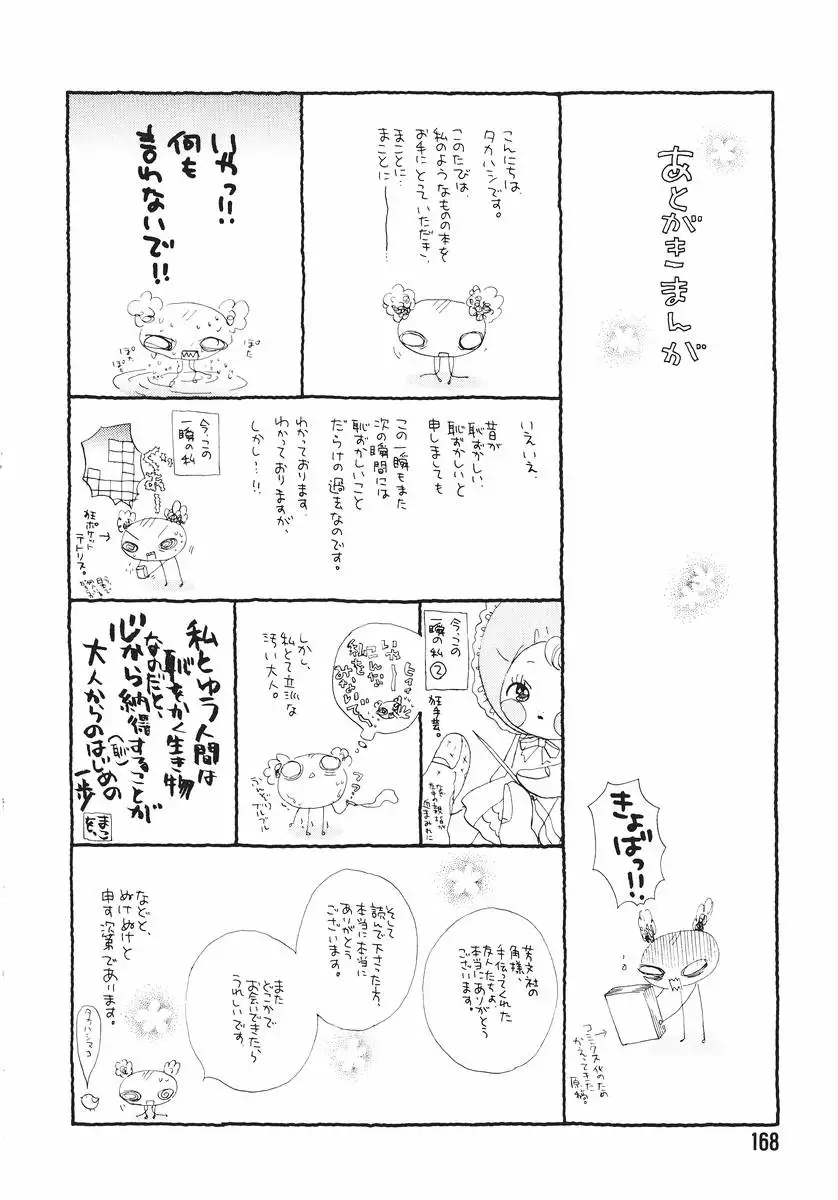 あとがきまんが
きょばっ!!
コミックス化のため
かえってきた
原稿。
こんにちは、
タカハシです。
このたびは、
私のようなものの本を
お手にとっていただき、
まことに…
まことに―――
いやっ!!
何も
言わないで!!
ぽた
ぽた
ぽた
いえいえ、
昔が
恥ずかしい、
恥ずかしいと
申しましても
この一瞬もまた
次の瞬間には
恥ずかしいこと
だらけの過去なのです。
わかっております、
わかっておりますが、
しかし…!!
今、この
一瞬の私
狂ポケット
テトリス。
今、この
一瞬の私②
狂手芸。
しかし、
私とて立派な
汚い大人。
私とゆう人間は
恥をかく生き物
なのだと、
心から納得することが
(恥)
大人からのはじめの
一歩
芳文社の
角様、
手伝ってくれた
友人たちよ、
本当にありがとう
ございます。
そして
読んで下さった方、
本当に本当に
ありがとう
ございます。
また
どこかで
お会いできたら
うれしいです
などと、
ぬけぬけと
申す次第であります。
タカハシマコ
168